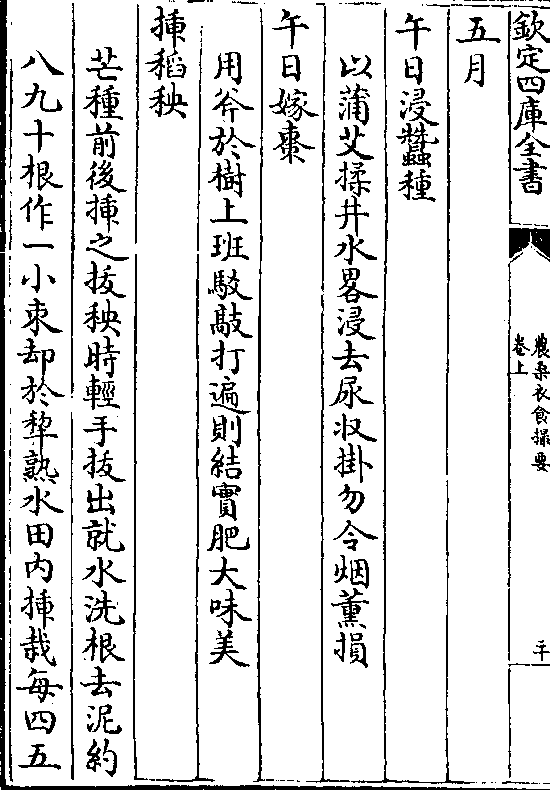 欽定四庫全書
農桑衣食撮要
卷上
二十
五月
午日浸蠶種
以蒲艾揉井水畧浸去尿收掛勿令烟薰損
午日嫁棗
用斧於樹上班駁敲打遍則結實肥大味美
揷稻秧
芒種前後揷之拔秧時輕手拔出就水洗根去泥約
八九十根作一小束却於犂熟水田內揷栽每四五